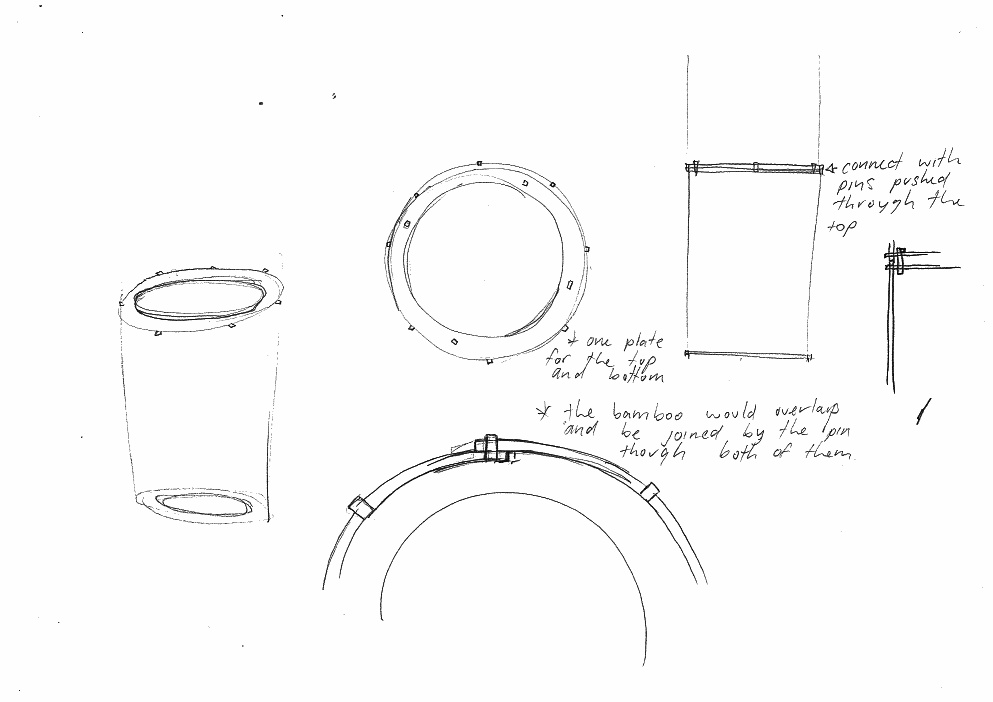 connect with
pins pushed
through the
top
* one plate
for the top
and bottom
* the bamboo would overlap
and be joined by the pin
though both of them.